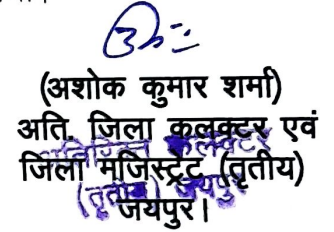 (अशोक कुमार शर्मा)
अति. जिला कलक्टर एवं
जिला मजिस्ट्रेट (तृतीय)
जयपुर।
अतिरिक्त कलक्टर
(तृतीय) जयपुर